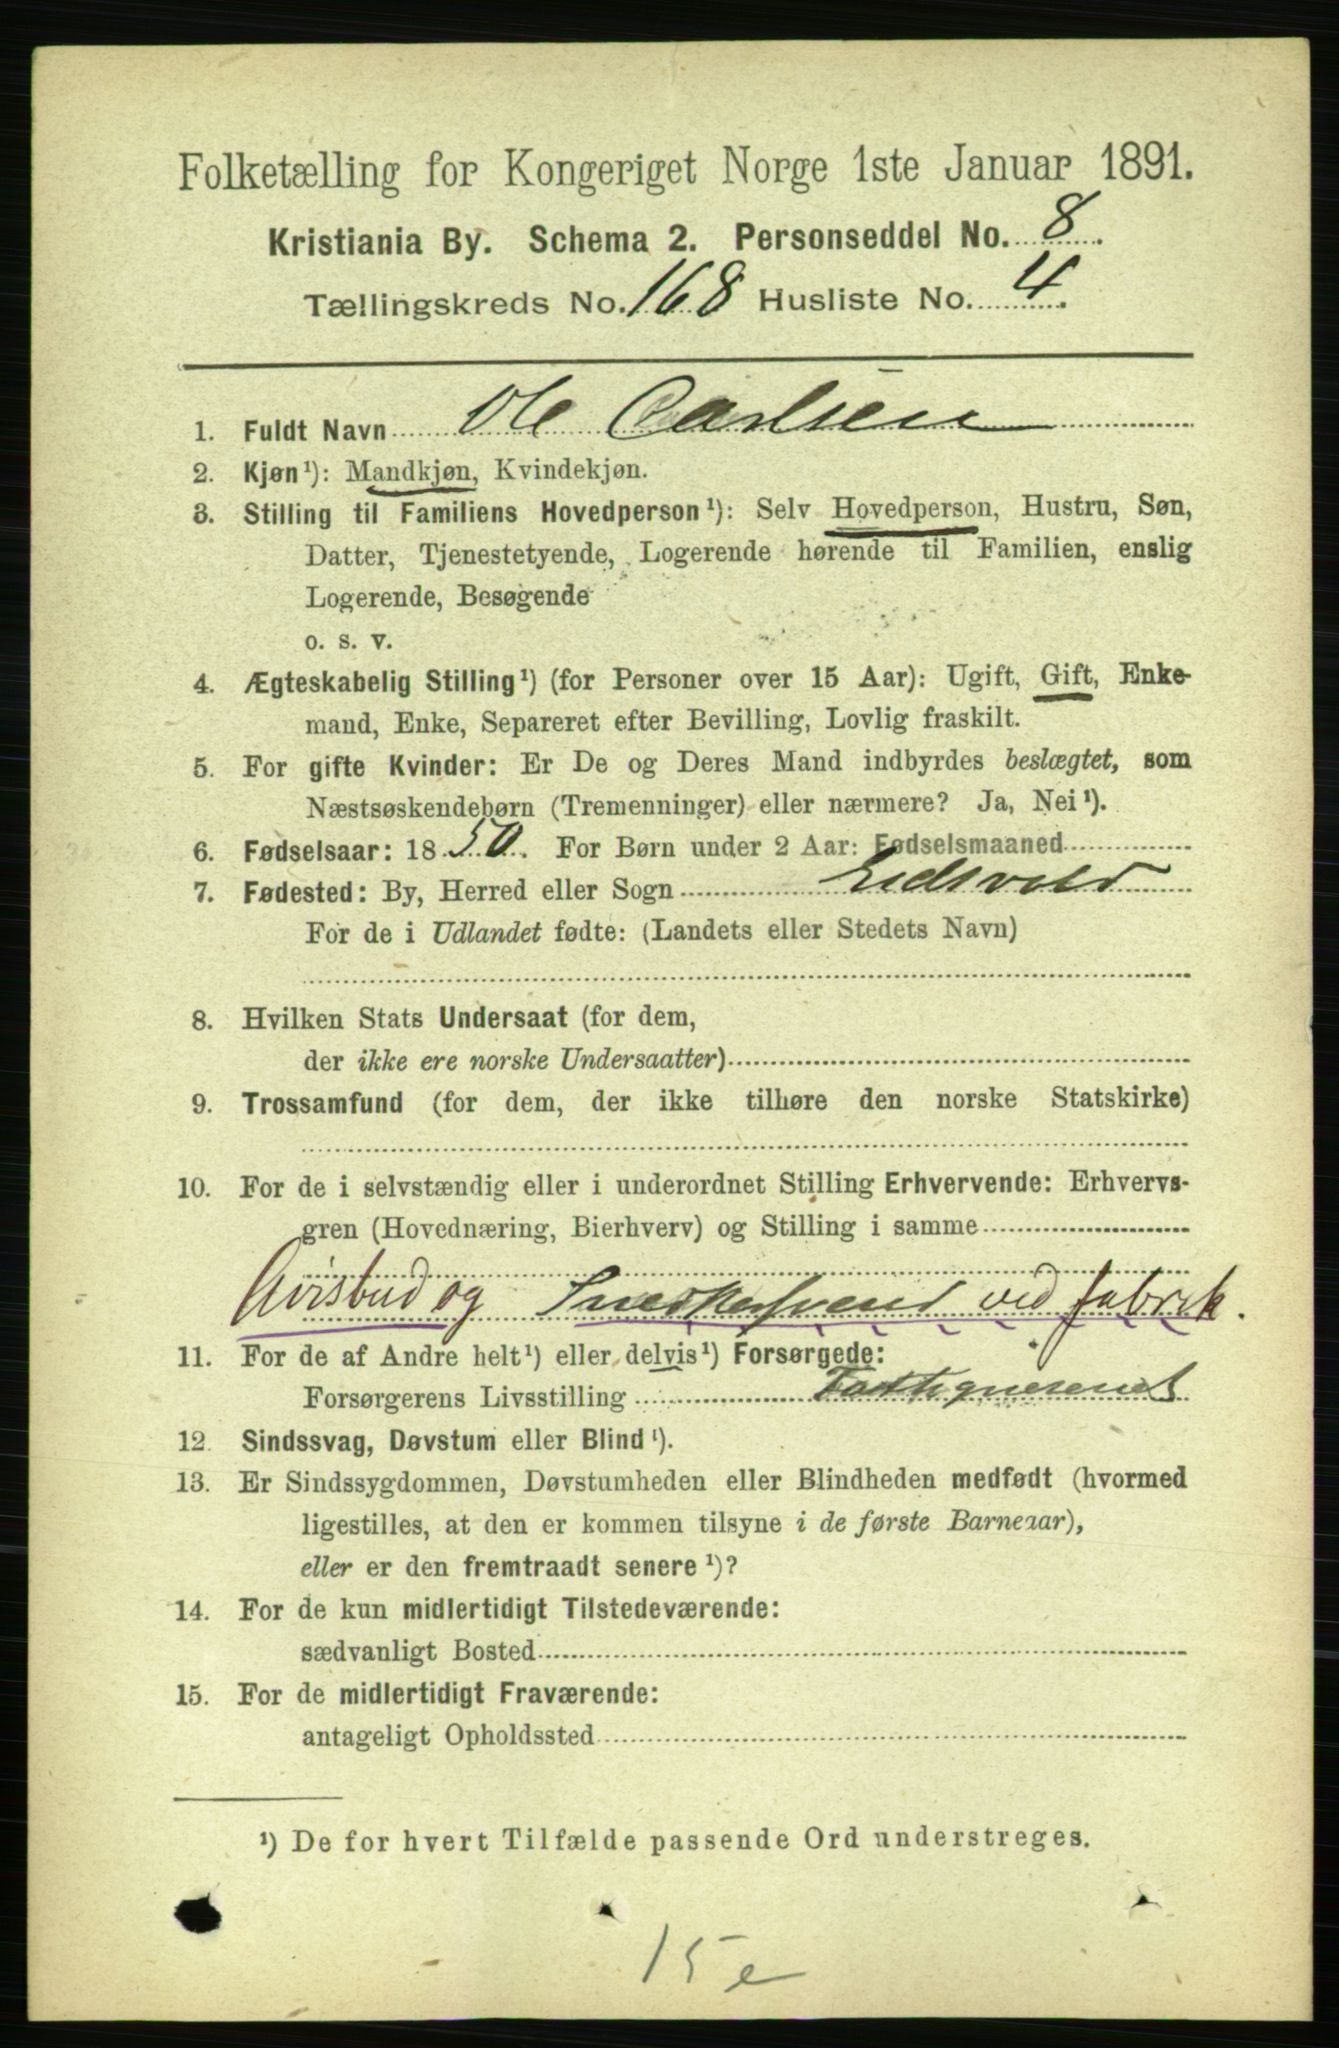 Folketælling for Kongeriget Norge 1ste Januar 1891.
Kristiania By. Schema 2. Personseddel No. 8.
Tællingskreds No. 168 Husliste No. 4.
1. Fuldt Navn Ole Carlsen
2. Kjøn¹): Mandkjøn, Kvindekjøn.
3. Stilling til Familiens Hovedperson¹): Selv Hovedperson, Hustru, Søn,
Datter, Tjenestetyende, Logerende hørende til Familien, enslig
Logerende, Besøgende
o. s. v.
4. Ægteskabelig Stilling¹) (for Personer over 15 Aar): Ugift, Gift, Enke-
mand, Enke, Separeret efter Bevilling, Lovlig fraskilt.
5. For gifte Kvinder: Er De og Deres Mand indbyrdes beslægtet, som
Næstsøskendebørn (Tremenninger) eller nærmere? Ja, Nei¹).
6. Fødselsaar: 1850. For Børn under 2 Aar: Fødselsmaaned
7. Fødested: By, Herred eller Sogn Eidsvold
For de i Udlandet fødte: (Landets eller Stedets Navn)
8. Hvilken Stats Undersaat (for dem,
der ikke ere norske Undersaatter)
9. Trossamfund (for dem, der ikke tilhøre den norske Statskirke)
10. For de i selvstændig eller i underordnet Stilling Erhvervende: Erhvervs-
gren (Hovednæring, Bierhverv) og Stilling i samme
Avisbud og Snedkersvend ved fabrik.
11. For de af Andre helt¹) eller delvis¹) Forsørgede:
Forsørgerens Livsstilling Fattigvesenet
12. Sindssvag, Døvstum eller Blind¹).
13. Er Sindssygdommen, Døvstumheden eller Blindheden medfødt (hvormed
ligestilles, at den er kommen tilsyne i de første Barneaar),
eller er den fremtraadt senere¹)?
14. For de kun midlertidigt Tilstedeværende:
sædvanligt Bosted
15. For de midlertidigt Fraværende:
antageligt Opholdssted
¹) De for hvert Tilfælde passende Ord understreges.
15e